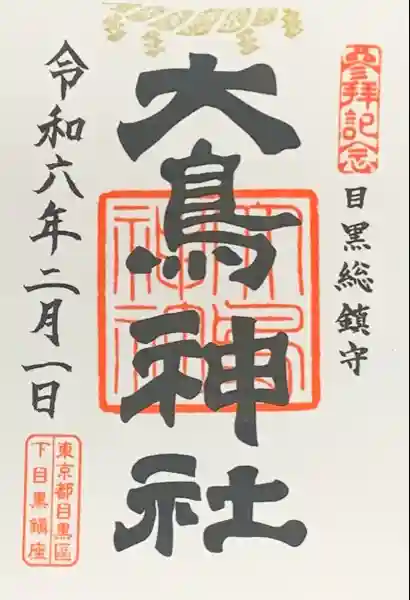 參拜記念
目黒総鎮守
大鳥神社
令和六年二月一日
東京都目黒區
下目黒鎮座